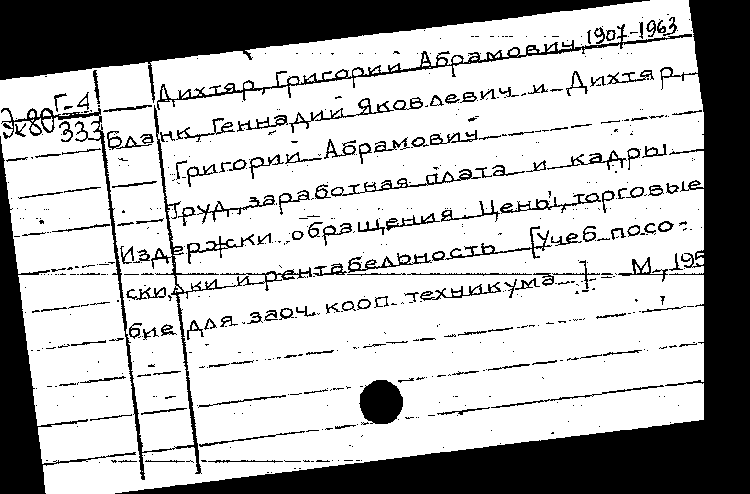 Дихтяр, Григорий Абрамович, 1907-1963
Эк80 Г-4
333
Бланк, Геннадий Яковлевич и Дихтяр,
Григорий Абрамович
Труд, заработная плата и кадры.
Издержки обращения. Цены, торговые
скидки и рентабельность [Учеб. посо-
бие для заоч. кооп. техникума.] М., 195